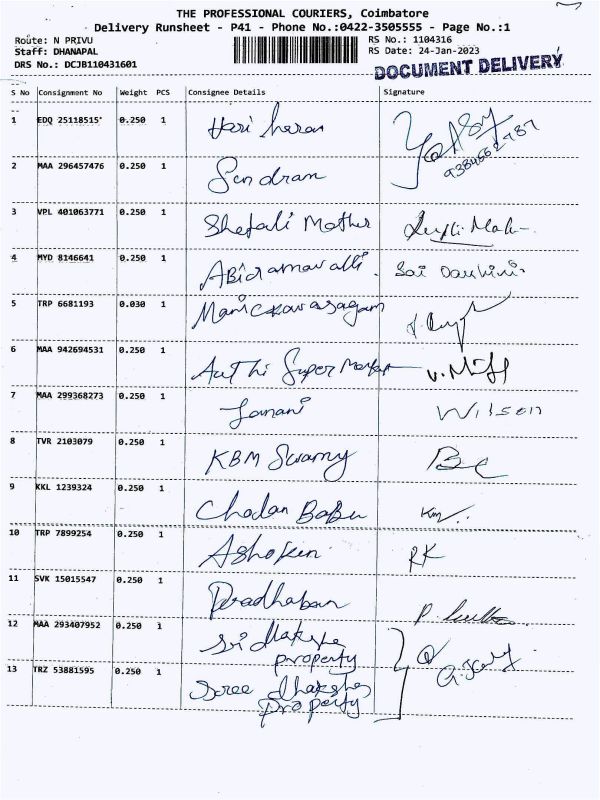 THE PROFESSIONAL COURIERS, Coimbatore
Delivery Runsheet - P41 - Phone No.:0422-3505555 - Page No.:1
Route: N PRIVU
RS No.: 1104316
Staff: DHANAPAL
RS Date: 24-Jan-2023
DRS No.: DCJB110431601
DOCUMENT DELIVERY
S No Consignment No Weight PCS Consignee Details Signature
1 EDQ 25118515 0.250 1 Hari haran
2 MAA 296457476 0.250 1 Sendram
3 VPL 401063771 0.250 1 Shefali Mother
4 MYD 8146641 0.250 1 Abiramavalli. Sai
5 TRP 6681193 0.030 1 Manickavasagam
6 MAA 942694531 0.250 1 Aathi Super Market
7 MAA 299368273 0.250 1 Janani Wilson
8 TVR 2103079 0.250 1 KBM Swamy
9 KKL 1239324 0.250 1 Babu
10 TRP 7899254 0.250 1 RK
11 SVK 15015547 0.250 1 Pradhaban
12 MAA 293407952 0.250 1 Sri
property
13 TRZ 53881595 0.250 1 Sree
property